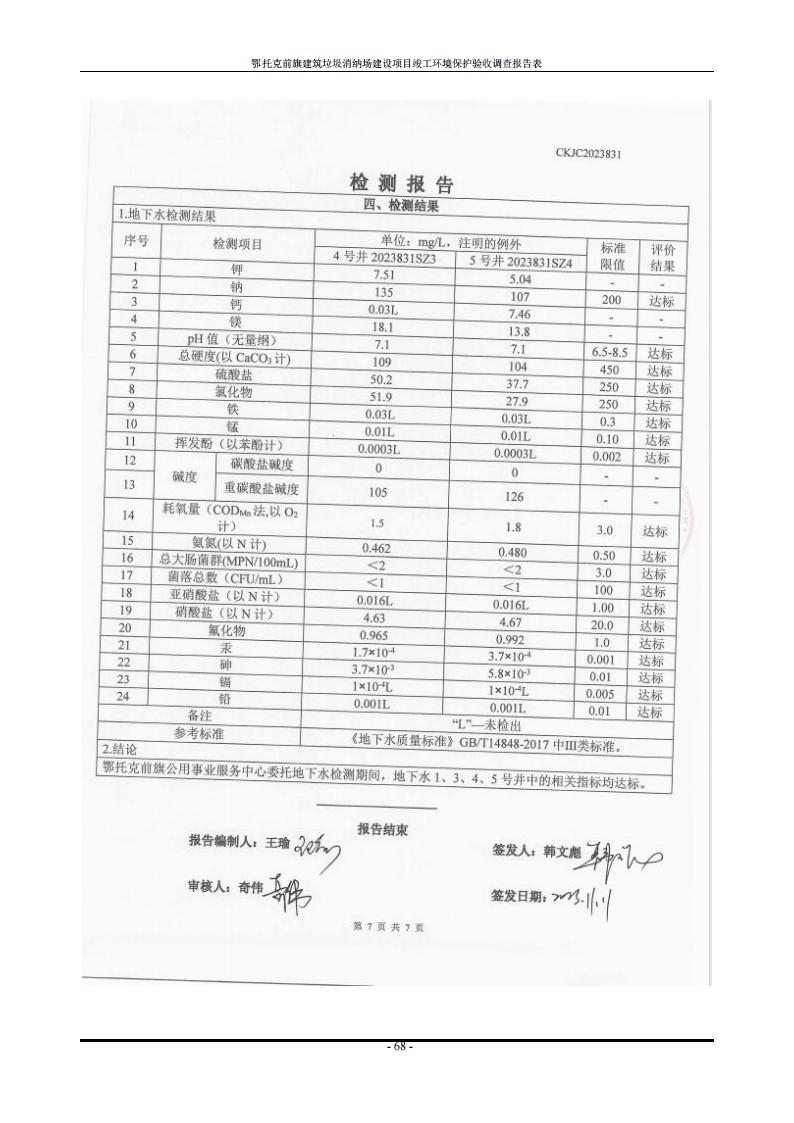 鄂托克前旗建筑垃圾消纳场建设项目竣工环境保护验收调查报告表
CKJC2023831
检 测 报 告
四、检测结果
1.地下水检测结果
序号 检测项目 单位：mg/L，注明的例外 标准限值 评价结果
4 号井 2023831SZ3 5 号井 2023831SZ4
1 钾 7.51 5.04 - -
2 钠 135 107 200 达标
3 钙 0.03L 7.46 - -
4 镁 18.1 13.8 - -
5 pH 值（无量纲） 7.1 7.1 6.5-8.5 达标
6 总硬度(以 CaCO₃ 计) 109 104 450 达标
7 硫酸盐 50.2 37.7 250 达标
8 氯化物 51.9 27.9 250 达标
9 铁 0.03L 0.03L 0.3 达标
10 锰 0.01L 0.01L 0.10 达标
11 挥发酚（以苯酚计） 0.0003L 0.0003L 0.002 达标
12 碱度 碳酸盐碱度 0 0 - -
13 重碳酸盐碱度 105 126 - -
14 耗氧量（CODMn 法,以 O₂ 计） 1.5 1.8 3.0 达标
15 氨氮(以 N 计) 0.462 0.480 0.50 达标
16 总大肠菌群(MPN/100mL) ＜2 ＜2 3.0 达标
17 菌落总数（CFU/mL） ＜1 ＜1 100 达标
18 亚硝酸盐（以 N 计） 0.016L 0.016L 1.00 达标
19 硝酸盐（以 N 计） 4.63 4.67 20.0 达标
20 氟化物 0.965 0.992 1.0 达标
21 汞 1.7×10⁻⁴ 3.7×10⁻⁴ 0.001 达标
22 砷 3.7×10⁻³ 5.8×10⁻³ 0.01 达标
23 镉 1×10⁻⁴L 1×10⁻⁴L 0.005 达标
24 铅 0.001L 0.001L 0.01 达标
备注 “L”—未检出
参考标准 《地下水质量标准》GB/T14848-2017 中Ⅲ类标准。
2.结论
鄂托克前旗公用事业服务中心委托地下水检测期间，地下水 1、3、4、5 号井中的相关指标均达标。
报告结束
报告编制人：王瑜
签发人：韩文彪
审核人：奇伟
签发日期：2023.11.11
第 7 页 共 7 页
- 68 -